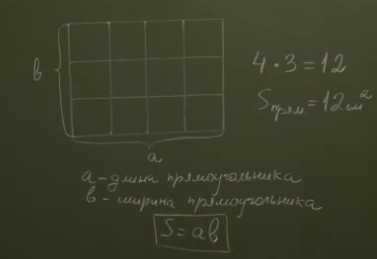 в
4 · 3 = 12
Sпрям = 12 см²
a
a - длина прямоугольника
в - ширина прямоугольника
S = aв